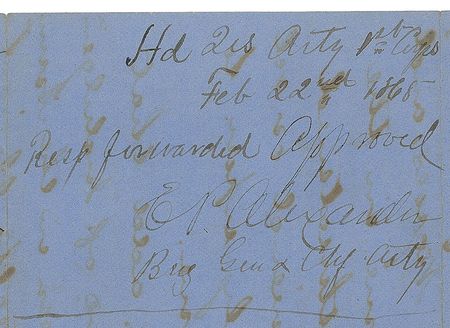 Hd Qrs Arty 1st Corps
Feb 22nd 1865
Resp forwarded Approved
E P Alexander
Brig Gen & Chf Arty